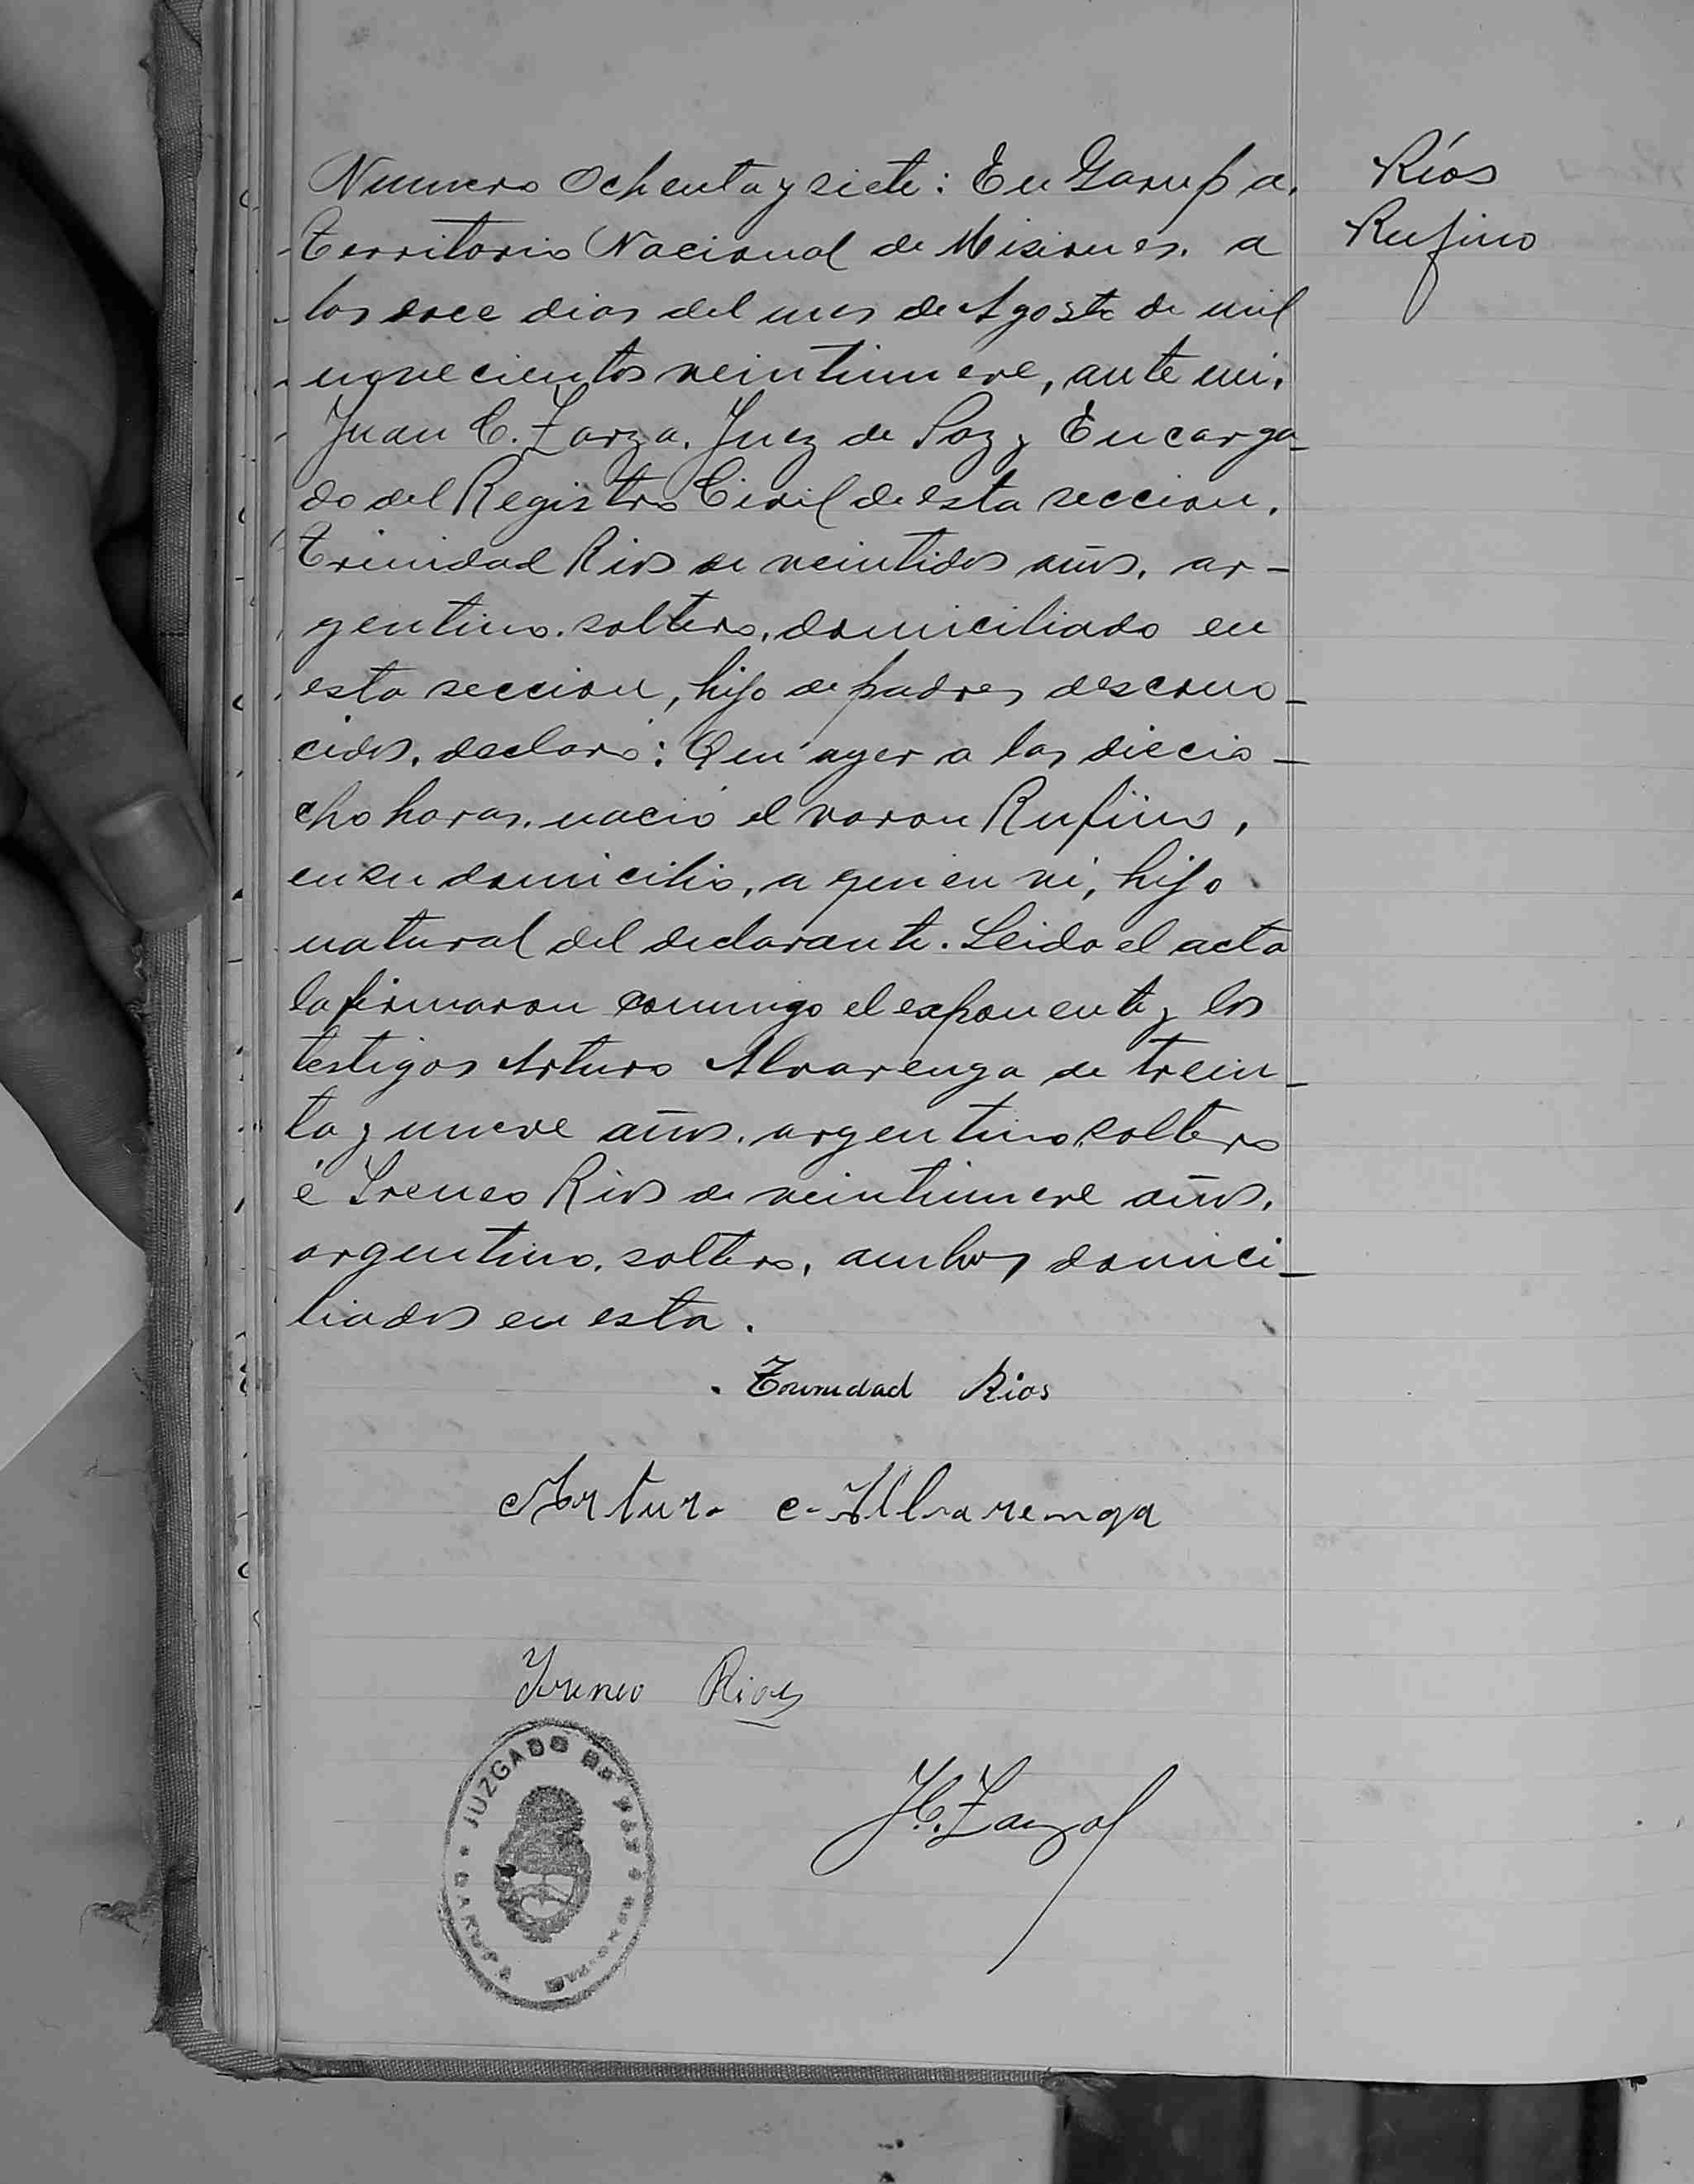 Numero Ochenta y siete: En Garupa.
Territorio Nacional de Misiones. a
los doce dias del mes de Agosto de mil
novecientos veintinueve, ante mi.
Juan C. Zarza. Juez de Paz y Encarga-
do del Registro Civil de esta seccion.
Trinidad Rios de veintidos años. ar-
gentino. soltero. domiciliado en
esta seccion, hijo de padres descono-
cidos. declaró: Que ayer a las diecio-
cho horas. nació el varon Rufino,
en su domicilio, a quien vi, hijo
natural del declarante. Leida el acta
la firmaron conmigo el exponente y los
testigos Arturo Alvarenga de trein-
ta y nueve años. argentino, soltero
é Ireneo Rios de veintinueve años.
argentino. soltero, ambos domici-
liados en esta.
Ríos
Rufino
Trinidad Rios
Arturo Alvarenga
Ireneo Rios
J.C. Zarza
JUZGADO DE PAZ
GARUPA